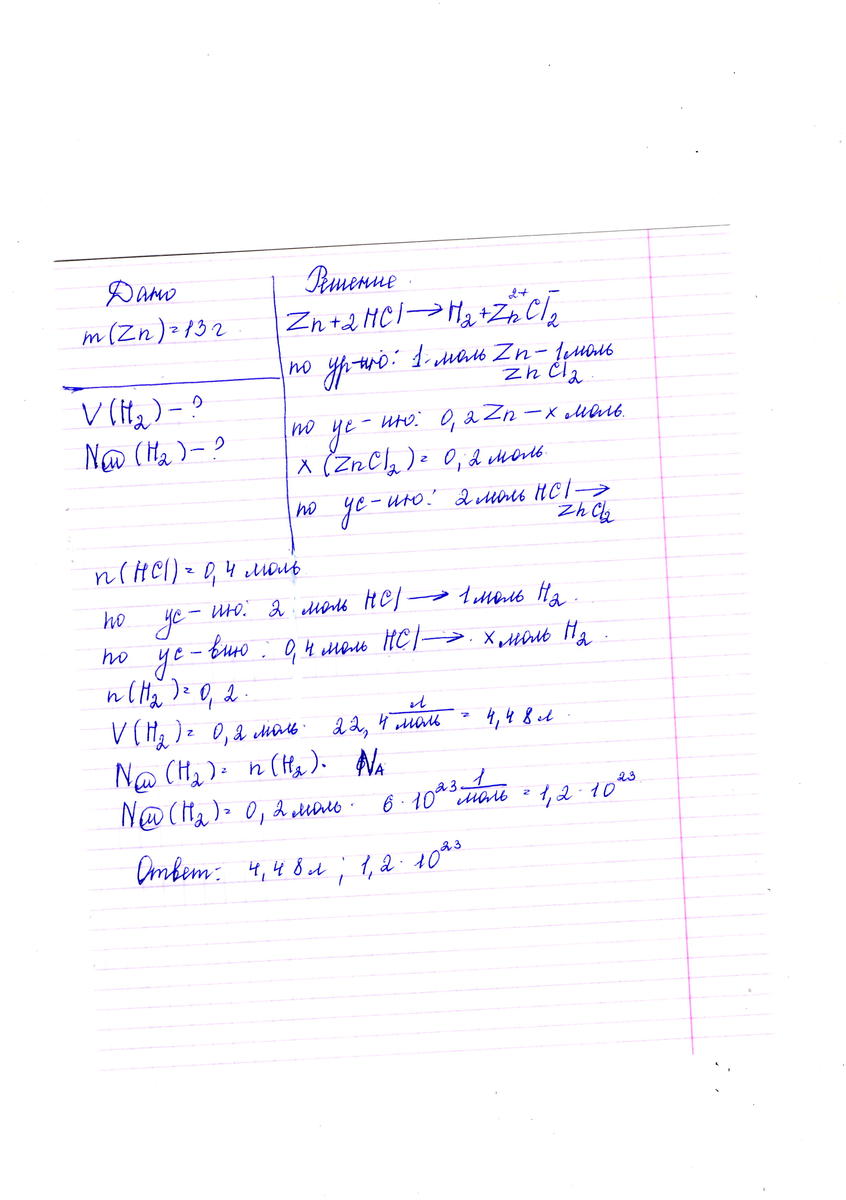 Дано
m(Zn)=13г
V(H₂)-?
N(м)(H₂)-?
Решение.
Zn+2HCl→H₂+Zn²⁺Cl₂⁻
по ур-ию: 1 моль Zn-1моль
ZnCl₂
по ус-ию: 0,2Zn-x моль.
x(ZnCl₂)=0,2моль
по ус-ию: 2моль HCl→
ZnCl₂
n(HCl)=0,4моль
по ус-ию: 2 моль HCl→1моль H₂.
по ус-вию: 0,4моль HCl→x моль H₂.
n(H₂)=0,2.
V(H₂)=0,2моль·22,4 л/моль=4,48л.
N(м)(H₂)=n(H₂)·Nᴀ
N(м)(H₂)=0,2моль·6·10²³ 1/моль=1,2·10²³
Ответ: 4,48л; 1,2·10²³